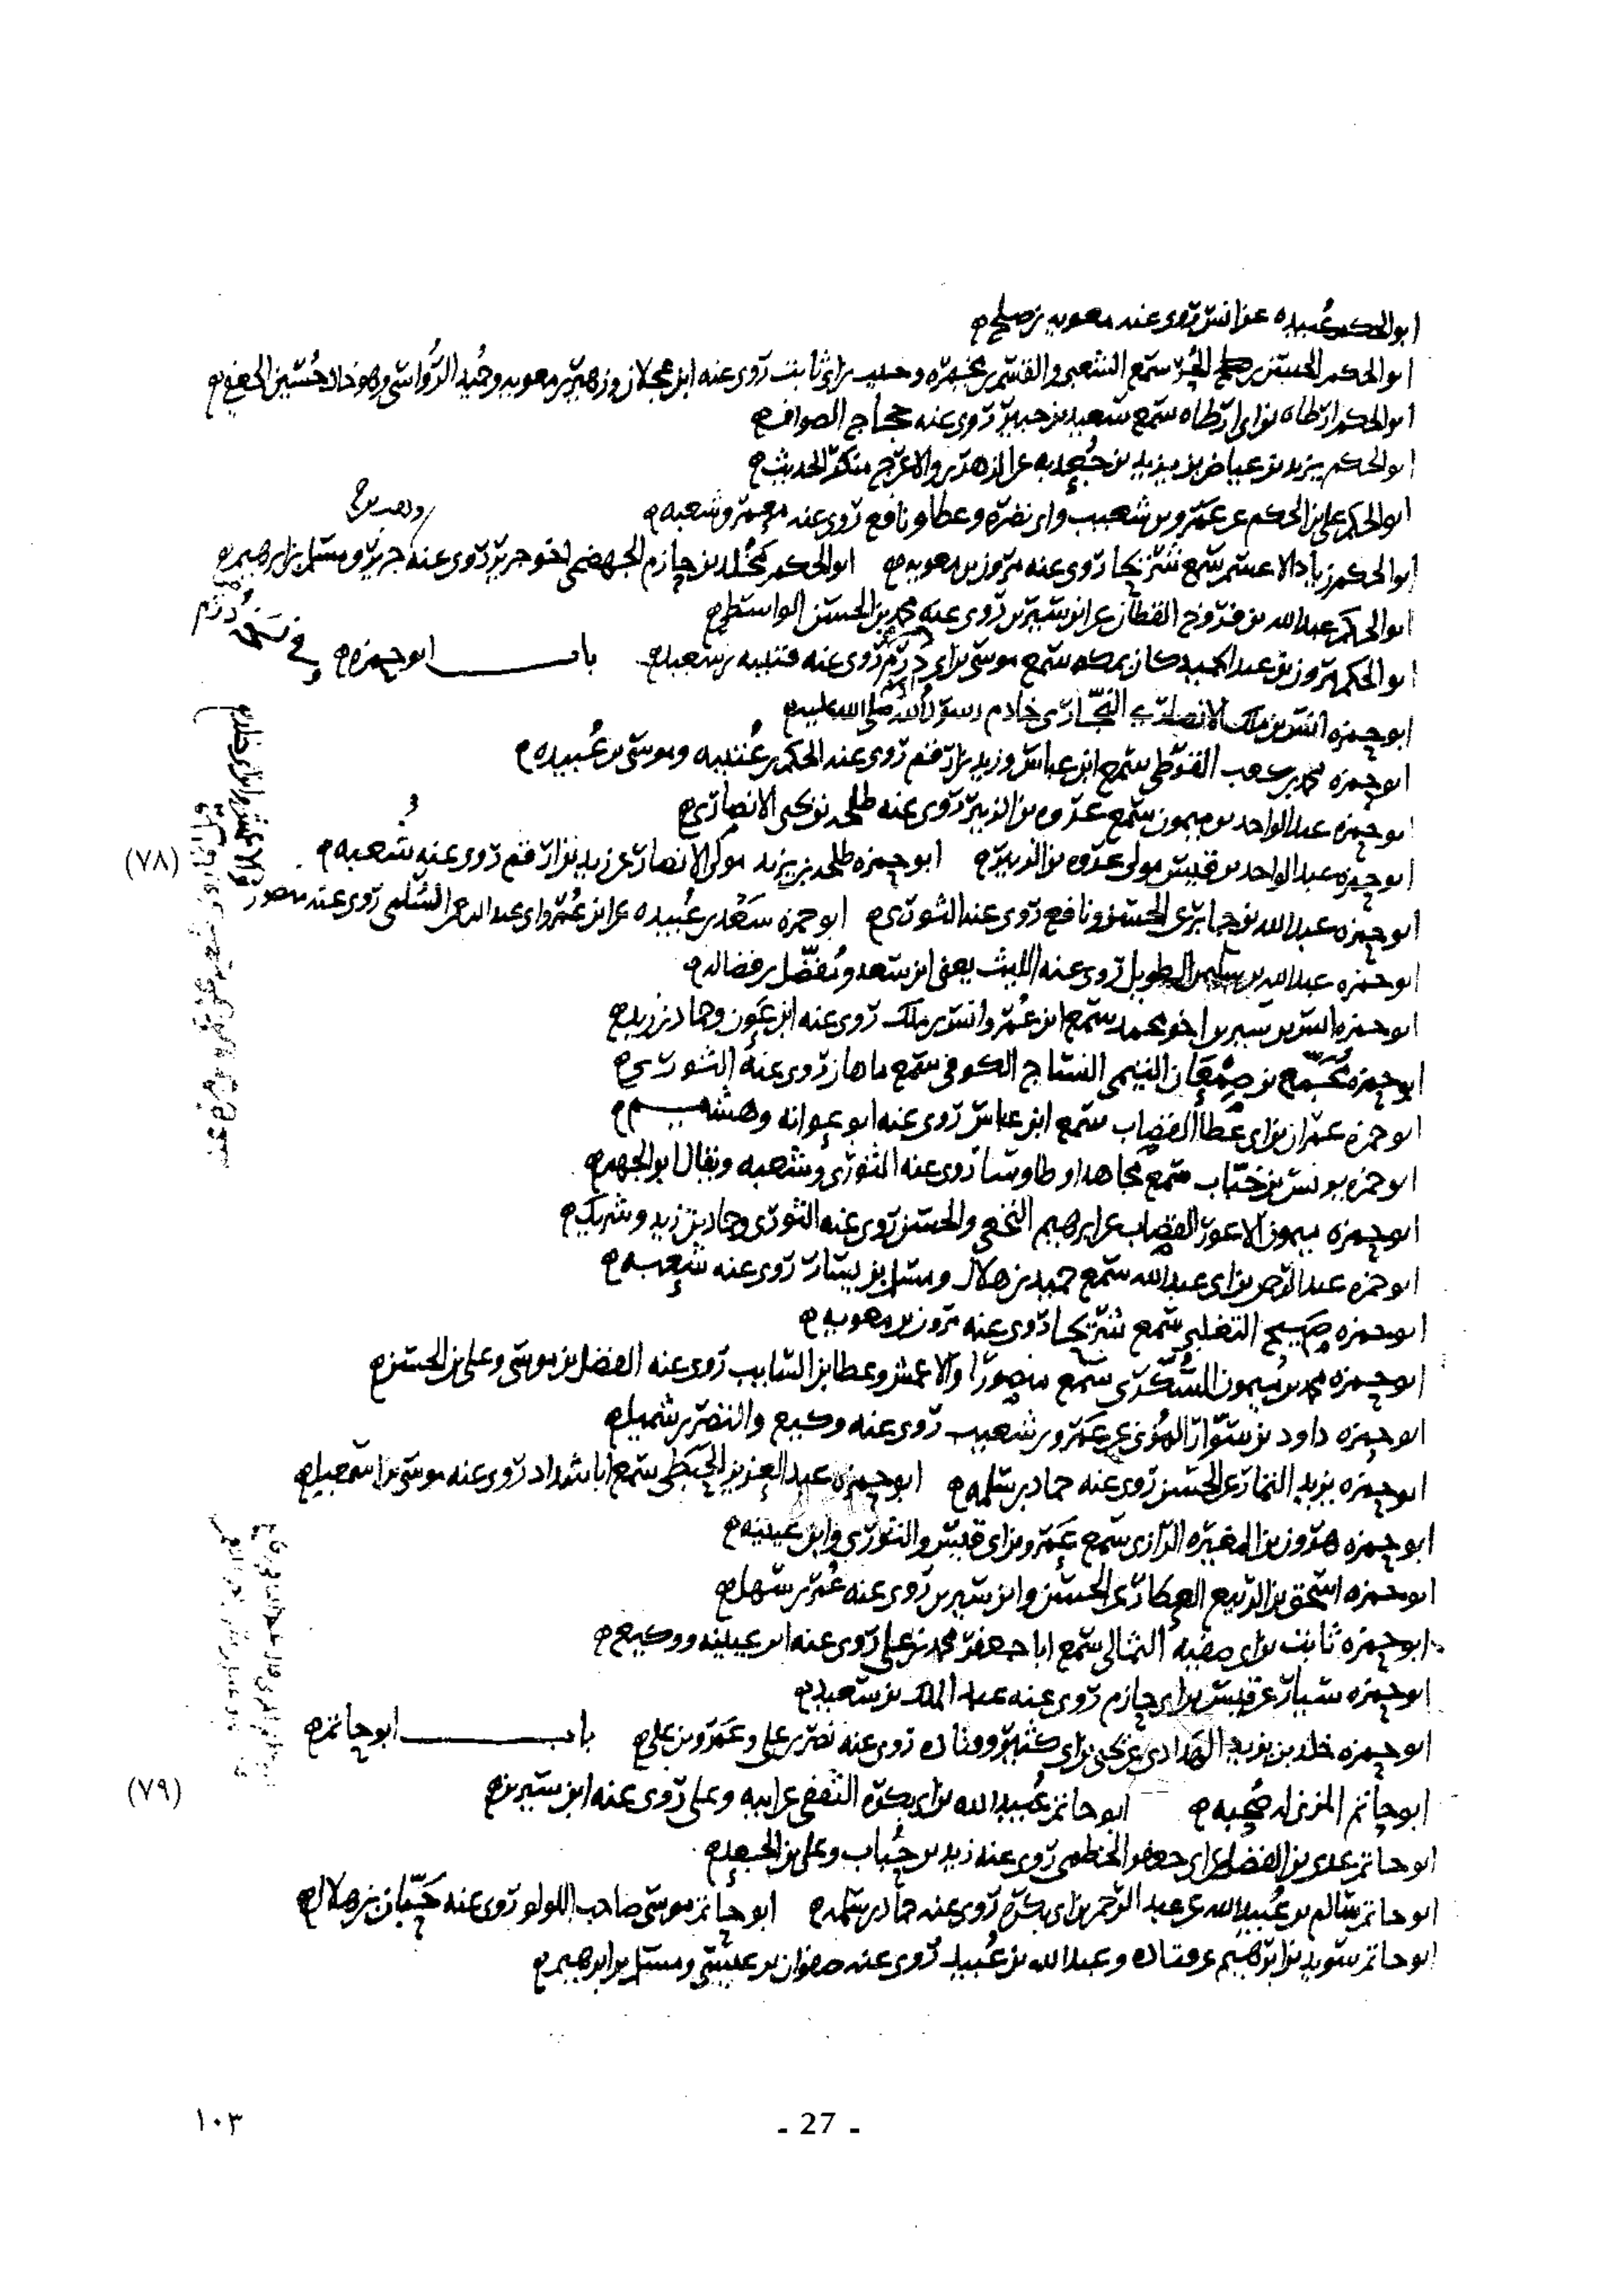 ابو الحكم عبيده عن انس روى عنه معويه بن صلح
ابو الحكم الحسن بن الحر سمع الشعبي والقسم بن مخيمره وحبيب بن ابى ثابت روى عنه ابن عجلان وزهير بن معويه وحميد الرواسى وهو خال حسين الجعفى
ابو الحكم ارطاه بن ابى ارطاه سمع سعيد بن جبير روى عنه حجاج الصواف
ابو الحكم يزيد بن عياض بن يزيد بن جعدبه عن الزهرى والاعرج منكر الحديث
ابو الحكم على بن الحكم عن عمرو بن شعيب وابى نضره وعطا ونافع روى عنه معمر وشعبه
ابو الحكم زياد الاعسم سمع شريحا روى عنه مروان بن معويه ابو الحكم مخلد بن حازم الجهضمى اخو جرير روى عنه جرير ومسلم بن ابرهيم
ابو الحكم عبد الله بن فروخ القطان عن ابن سيرين روى عنه محمد بن الحسن الواسطى
ابو الحكم مروان بن عبد الحميد كان بمكه سمع موسى بن ابى درم روى عنه قتيبه بن سعيد باب ابو حمزه
فى نسخه درم
ابو حمزه انس بن ملك الانصارى النجارى خادم رسول الله صلى الله عليه
ابو حمزه محمد بن كعب القرظى سمع ابن عباس وزيد بن ارقم روى عنه الحكم بن عتيبه وموسى بن عبيده
ابو حمزه عبد الواحد بن ميمون سمع عروه بن الزبير روى عنه طلحه بن يحيى الانصارى
ابو حمزه عبد الواحد بن قيس مولى عروه بن الزبير ابو حمزه طلحه بن يزيد مولى الانصار عن زيد بن ارقم روى عنه شعبه
(٧٨)
ابو حمزه عبد الله بن جابر عن الحسن ونافع روى عنه الثورى ابو حمزه سعد بن عبيده عن ابن عمر وابى عبد الرحمن السلمى روى عنه منصور
ابو حمزه عبد الله بن سليمن الطويل روى عنه الليث يعنى ابن سعد ومفضل بن فضاله
ابو حمزه انس بن سيرين اخو محمد سمع ابن عمر وانس بن ملك روى عنه ابن عون وحماد بن زيد
ابو حمزه مجمع بن صمعان التيمى النساج الكوفى سمع ماهان روى عنه الثورى
ابو حمزه عمران بن ابى عطا القصاب سمع ابن عباس روى عنه ابو عوانه وهشيم
ابو حمزه يونس بن خباب سمع مجاهدا وطاوسا روى عنه الثورى وشعبه ويقال ابو الجهم
ابو حمزه ميمون الاعور القصاب عن ابرهيم النخعى والحسن روى عنه الثورى وحماد بن زيد وشريك
ابو حمزه عبد الرحمن بن ابى عبد الله سمع حميد بن هلال ومسلم بن يسار روى عنه شعبه
ابو حمزه صبيح التغلبى سمع شريحا روى عنه مروان بن معويه
ابو حمزه محمد بن ميمون السكرى سمع منصورا والاعمش وعطا بن السايب روى عنه الفضل بن موسى وعلى بن الحسن
ابو حمزه داود بن سوار المزنى عن عمرو بن شعيب روى عنه وكيع والنضر بن شميل
ابو حمزه يزيد التمار عن الحسن روى عنه حماد بن سلمه ابو حمزه عبد العزيز الحبطى سمع ابا شداد روى عنه موسى بن اسمعيل
ابو حمزه هرون بن المغيره الرازى سمع عمرو بن ابى قيس والثورى وابن عيينه
ابو حمزه اسحق بن الربيع العطار عن الحسن وابن سيرين روى عنه عمر بن سهل
ابو حمزه ثابت بن ابى صفيه الثمالى سمع ابا جعفر محمد بن على روى عنه ابن عيينه ووكيع
ابو حمزه سيار عن قيس بن ابى حازم روى عنه عبد الملك بن سعيد
ابو حمزه خلد بن يزيد الهدادى عن يحيى بن ابى كثير وقتاده روى عنه نصر بن على وعمرو بن على باب ابو حاتم
ابو حاتم المزنى له صحبه ابو حاتم عبيد الله بن ابى بكره الثقفى عن ابيه وعلى روى عنه ابن سيرين
(٧٩)
ابو حاتم عدى بن الفضل عن ابى جعفر الخطمى روى عنه زيد بن حباب وعلى بن الجعد
ابو حاتم سالم بن عبيد الله عن عبد الرحمن بن ابى بكره روى عنه حماد بن سلمه ابو حاتم موسى صاحب اللولو روى عنه حبان بن هلال
ابو حاتم سويد بن ابرهيم عن قتاده وعبد الله بن عبيد روى عنه صفوان بن عيسى ومسلم بن ابرهيم
- 27 -
١٠٣